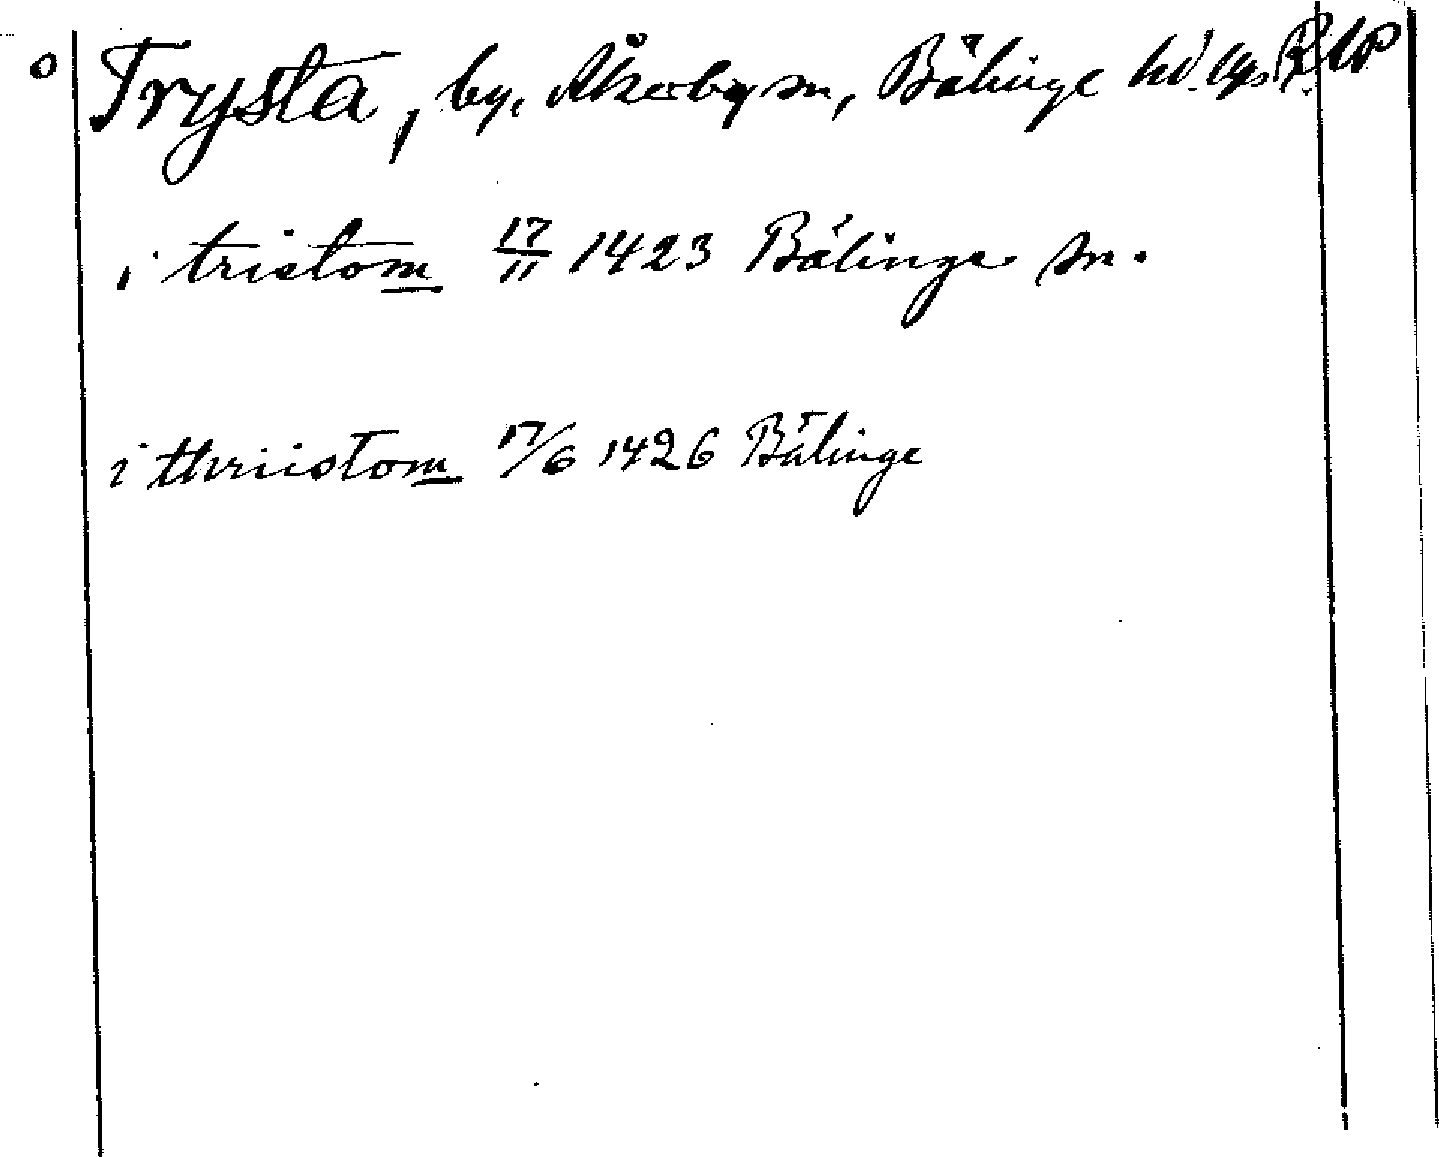 o Trysta, by, Åkerby sn, Bälinge hd Ups. Up
i tristom 17/11 1423 Bälinge sn.
i thriistom 17/6 1426 Bälinge